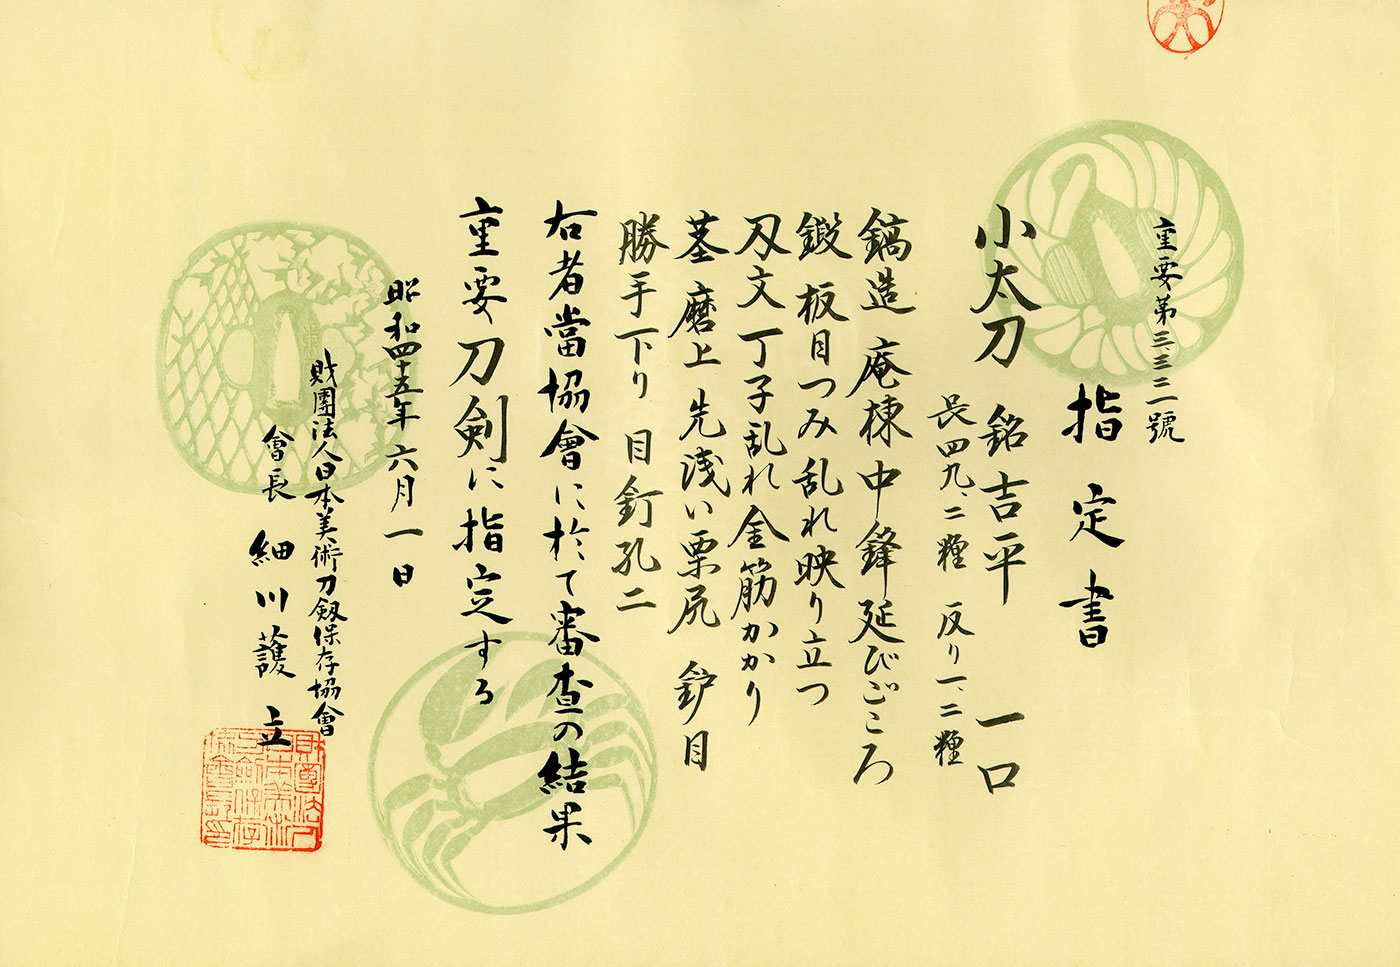 重要第三、三三二號
指定書
小太刀 銘吉平 一口
長四九、二糎 反り一、二糎
鎬造 庵棟 中鋒延びごころ
鍛 板目つみ乱れ映り立つ
刃文 丁子乱れ金筋かかり
茎 磨上 先浅い栗尻 鈩目
勝手下り 目釘孔二
右者當協會に於て審査の結果
重要刀剣に指定する
昭和四十五年六月一日
財團法人日本美術刀剱保存協會
會長 細川護立